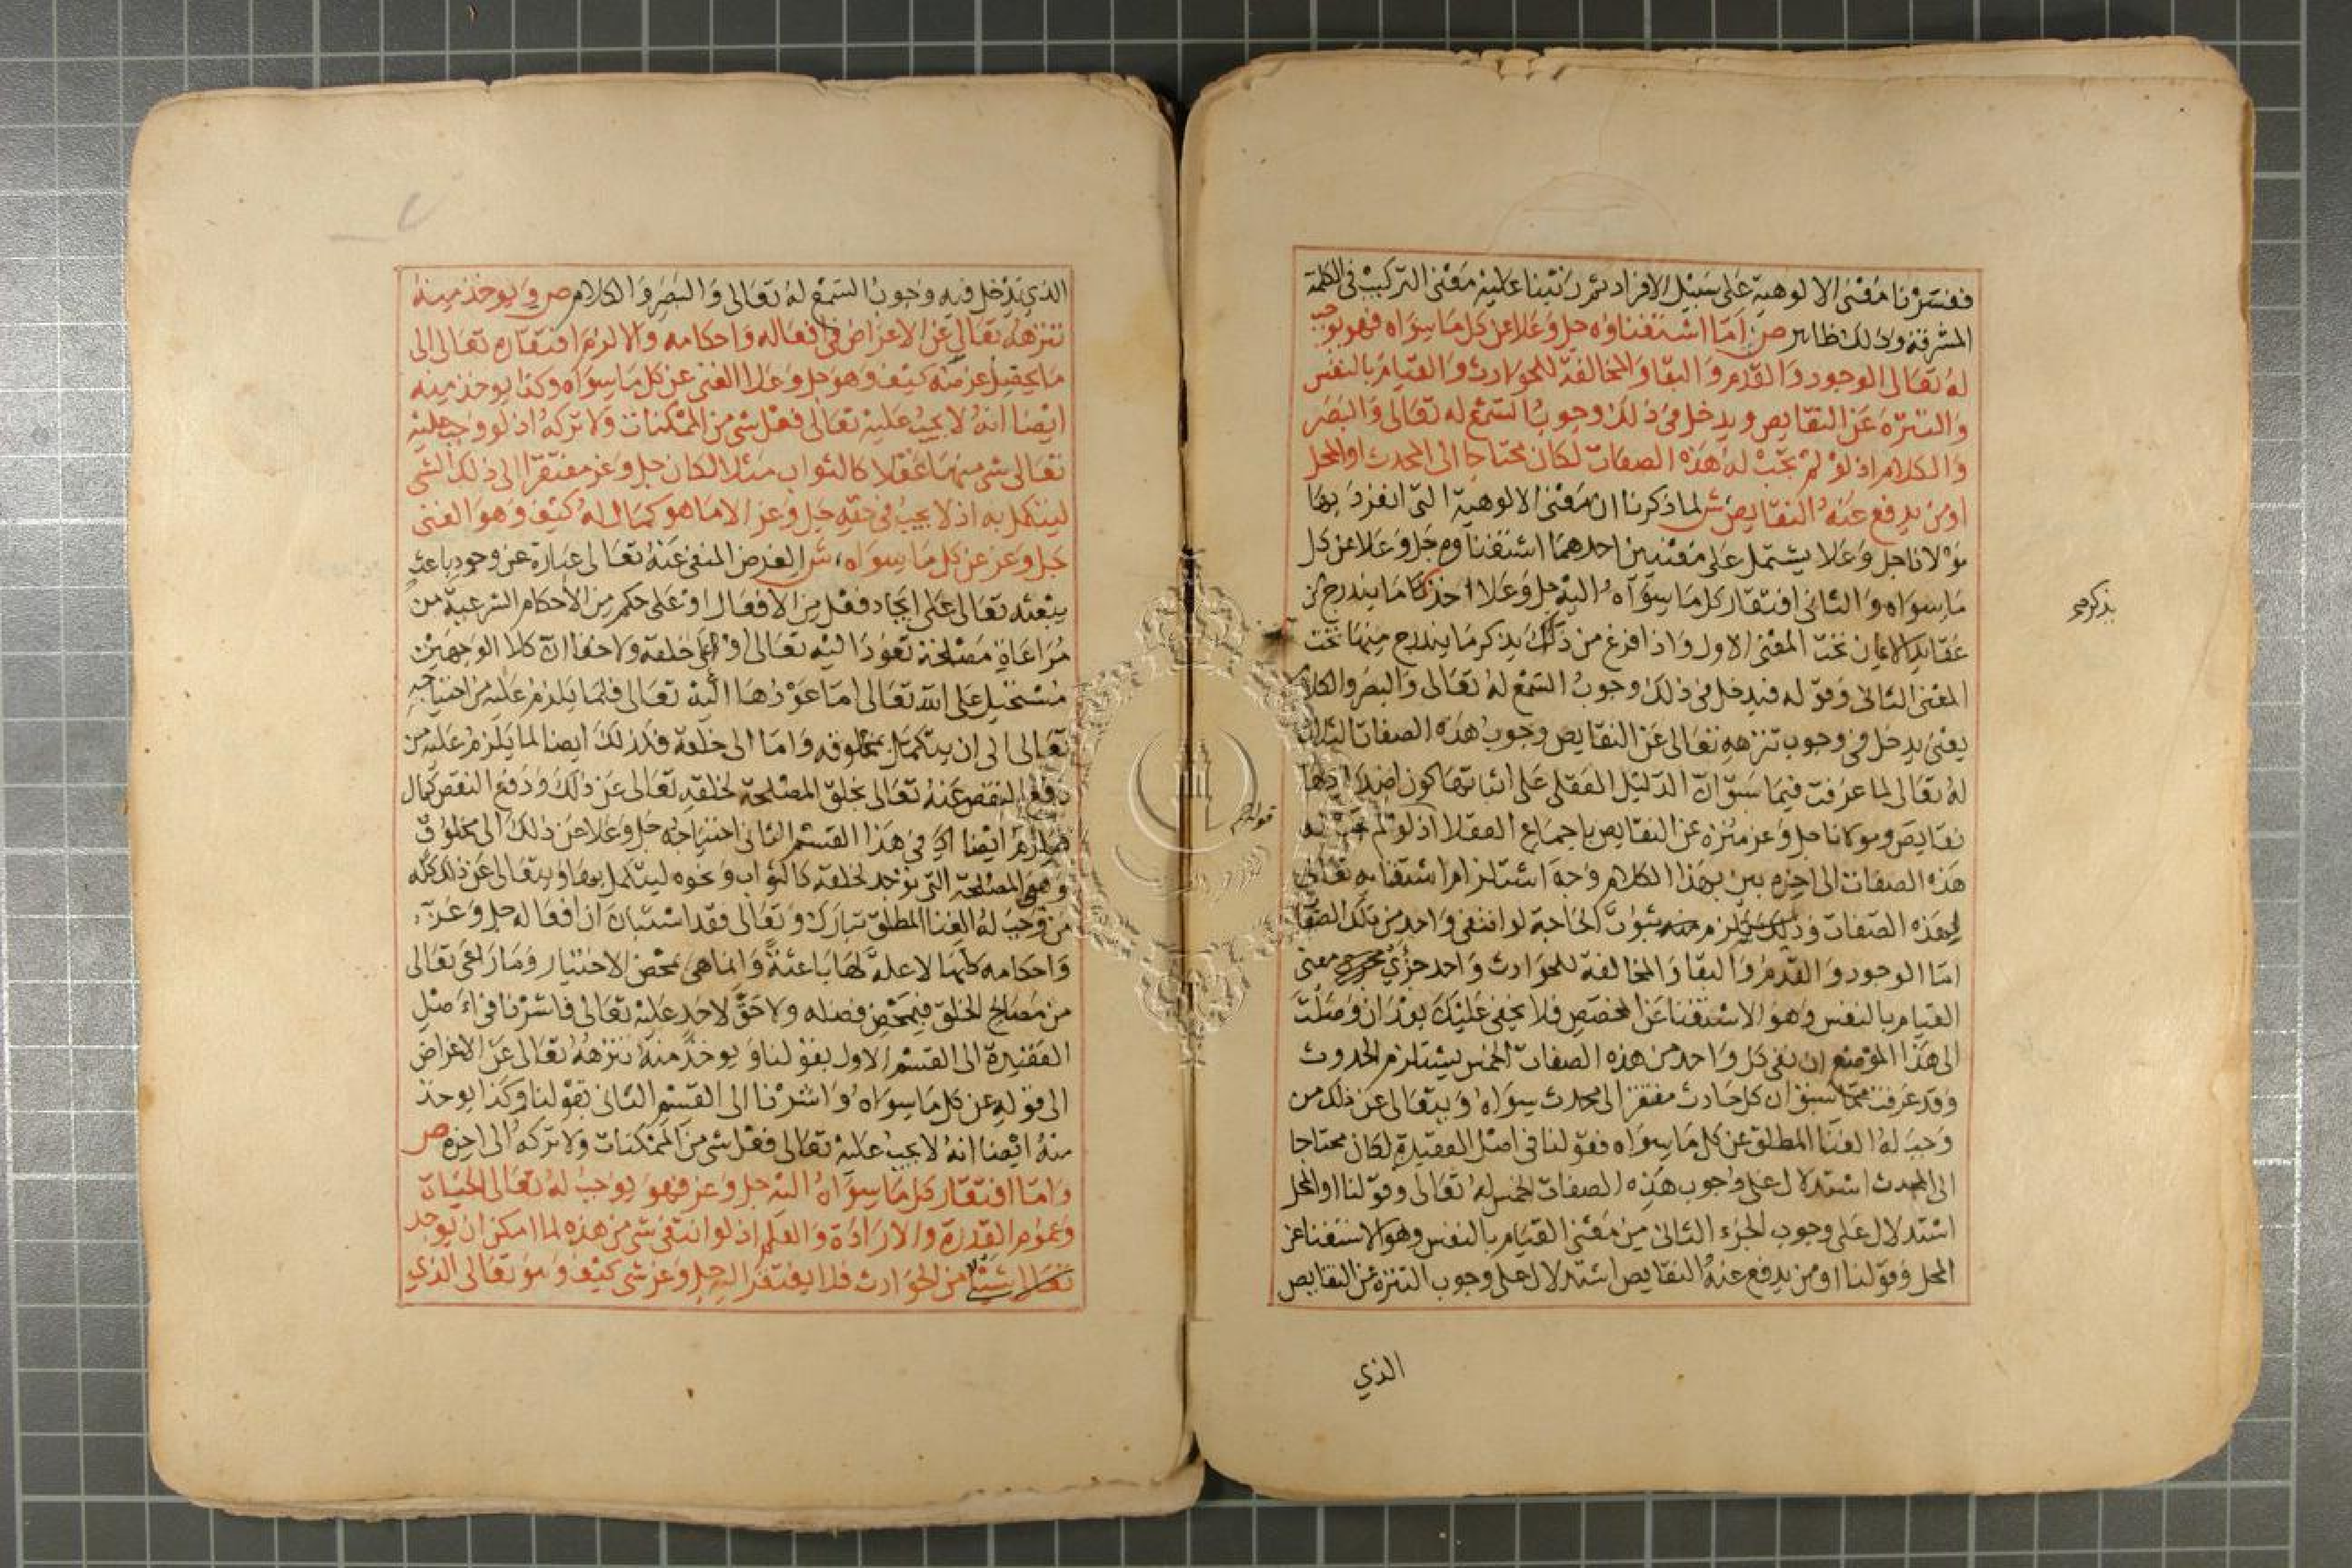 ففسرنا معنى الالوهية على سبيل الافراد ثم رتبنا عليه معنى التركيب في الكلمة
المشرفة وذلك ظاهر ص اما استغناؤه جل وعلا عن كل ما سواه فهو يوجب
له تعالى الوجود والقدم والبقا والمخالفة للحوادث والقيام بالنفس
والتنزه عن النقايص ويدخل في ذلك وجوب السمع له تعالى والبصر
والكلام اذ لو لم تجب له هذه الصفات لكان محتاجا الى المحدث او المحل
او من يدفع عنه النقايص ش لما ذكرنا ان معنى الالوهية التى انفرد بها
مولانا جل وعلا يشتمل على معنيين احدهما استغناوه جل وعلا عن كل
ما سواه والثانى افتقار كل ما سواه اليه جل وعلا اخذ ما يندرج من
عقايد الايمان تحت المعنى الاول واذا فرغ من ذلك يذكر ما يندرج منها تحت
المعنى الثانى وقوله فيدخل في ذلك وجوب السمع له تعالى والبصر والكلام
يعنى يدخل في وجوب تنزهه تعالى عن النقايص وجوب هذه الصفات الثلاث
له تعالى لما عرفت فيما سبق ان الدليل العقلى على اثباتها كون اضدادها
نقايص ومولانا جل وعز منزه عن النقايص باجماع العقلا اذ لو لم تجب له
هذه الصفات الى اخره بين بهذا الكلام وجه استلزام استغنايه تعالى
لهذه الصفات وذلك يلزم ثبوت الحاجة لو انتفى واحد من تلك الصفا
اما الوجود والقدم والبقا والمخالفة للحوادث واحد جزءي معنى
القيام بالنفس وهو الاستغنا عن المخصص فلا يخفى عليك بعد ان وصلت
الى هذا الموضع ان نفى كل واحد من هذه الصفات الخمس يستلزم الحدوث
وقد عرفت مما سبق ان كل حادث مفتقر الى محدث سواه ويتعالى عن ذلك من
وجب له الغنا المطلق عن كل ما سواه فقولنا في اصل العقيدة لكان محتاجا
الى المحدث استدلال على وجوب هذه الصفات الخمس له تعالى وقولنا او المحل
استدلال على وجوب الجزء الثانى من معنى القيام بالنفس وهو الاستغنا عن
المحل وقولنا او من يدفع عنه النقايص استدلال على وجوب التنزه عن النقايص
الذي
قوله
الذي يدخل فيه وجوب السمع له تعالى والبصر والكلام ص ويوخذ منه
تنزهه تعالى عن الاعراض في افعاله واحكامه والا لزم افتقاره تعالى الى
ما يحصل غرضه كيف وهو جل وعلا الغنى عن كل ما سواه وكذا يوخذ منه
ايضا انه لا يجب عليه تعالى فعل شى من الممكنات ولا تركه اذ لو وجب عليه
تعالى شى منها عقلا كالثواب مثلا لكان جل وعز مفتقرا الى ذلك الشى
ليتكمل به اذ لا يجب في حقه جل وعز الا ما هو كمال له كيف وهو الغنى
جل وعز عن كل ما سواه ش الغرض المنفى عنه تعالى عبارة عن وجود باعث
يبعثه تعالى على ايجاد فعل من الافعال او على حكم من الاحكام الشرعية من
مراعاة مصلحة تعود اليه تعالى او الى خلقه ولا خفا ان كلا الوجهين
مستحيل على الله تعالى اما عودها اليه تعالى فلما يلزم عليه من احتياجه
تعالى الى ان يتكمل بمخلوقه واما الى خلقه فكذلك ايضا لما يلزم عليه من
دفع النقص عنه تعالى بخلق المصلحة لخلقه تعالى عن ذلك ودفع النقص كمال
فيلزم ايضا في هذا القسم الثانى احتياجه جل وعلا عن ذلك الى مخلوق
وهى المصلحة التى توجد لخلقه كالثواب ونحوه ليتكمل بها ويتعالى عن ذلك كله
من وجب له الغنا المطلق تبارك وتعالى فقد استبان ان افعاله جل وعز
واحكامه كلها لا علة لها باعثة وانما هى بمحض الاختيار وما راعى تعالى
من مصالح الخلق فبمحض فضله ولا حق لاحد عليه تعالى فاشرنا في اصل
العقيدة الى القسم الاول بقولنا ويوخذ منه تنزهه تعالى عن الاعراض
الى قوله عن كل ما سواه واشرنا الى القسم الثانى بقولنا وكذا يوخذ
منه ايضا انه لا يجب عليه تعالى فعل شى من الممكنات ولا تركه الى اخره ص
واما افتقار كل ما سواه اليه جل وعز فهو يوجب له تعالى الحياة
وعموم القدرة والارادة والعلم اذ لو انتفى شى من هذه لما امكن ان يوجد
شى من الحوادث فلا يفتقر اليه جل وعز شى كيف وهو تعالى الذي